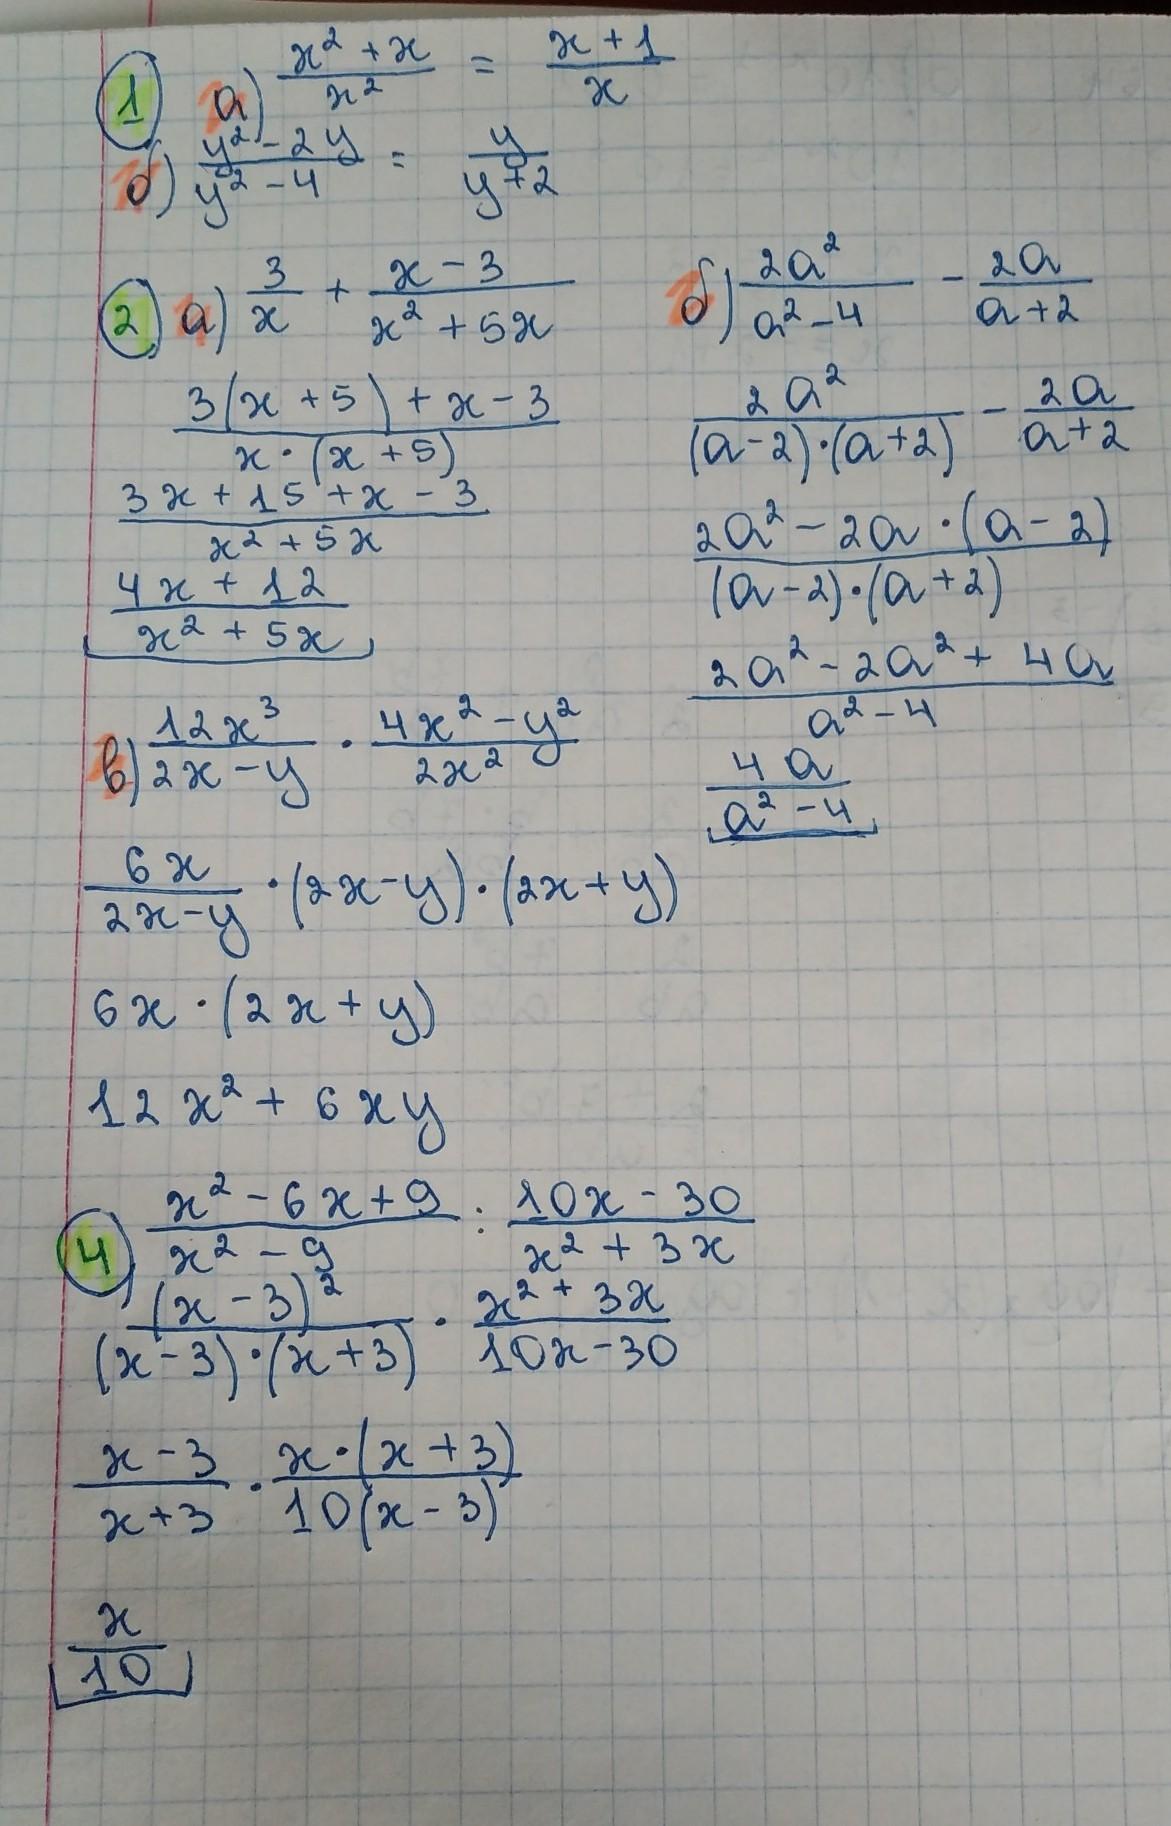 1 а) (x² + x)/x² = (x + 1)/x
б) (y² - 2y)/(y² - 4) = y/(y + 2)
2 а) 3/x + (x - 3)/(x² + 5x)
(3(x + 5) + x - 3)/(x · (x + 5))
(3x + 15 + x - 3)/(x² + 5x)
(4x + 12)/(x² + 5x)
б) 2a²/(a² - 4) - 2a/(a + 2)
2a²/((a - 2) · (a + 2)) - 2a/(a + 2)
(2a² - 2a · (a - 2))/((a - 2) · (a + 2))
(2a² - 2a² + 4a)/(a² - 4)
4a/(a² - 4)
в) 12x³/(2x - y) · (4x² - y²)/2x²
6x/(2x - y) · (2x - y) · (2x + y)
6x · (2x + y)
12x² + 6xy
4) (x² - 6x + 9)/(x² - 9) : (10x - 30)/(x² + 3x)
(x - 3)²/((x - 3) · (x + 3)) · (x² + 3x)/(10x - 30)
(x - 3)/(x + 3) · (x · (x + 3))/(10(x - 3))
x/10